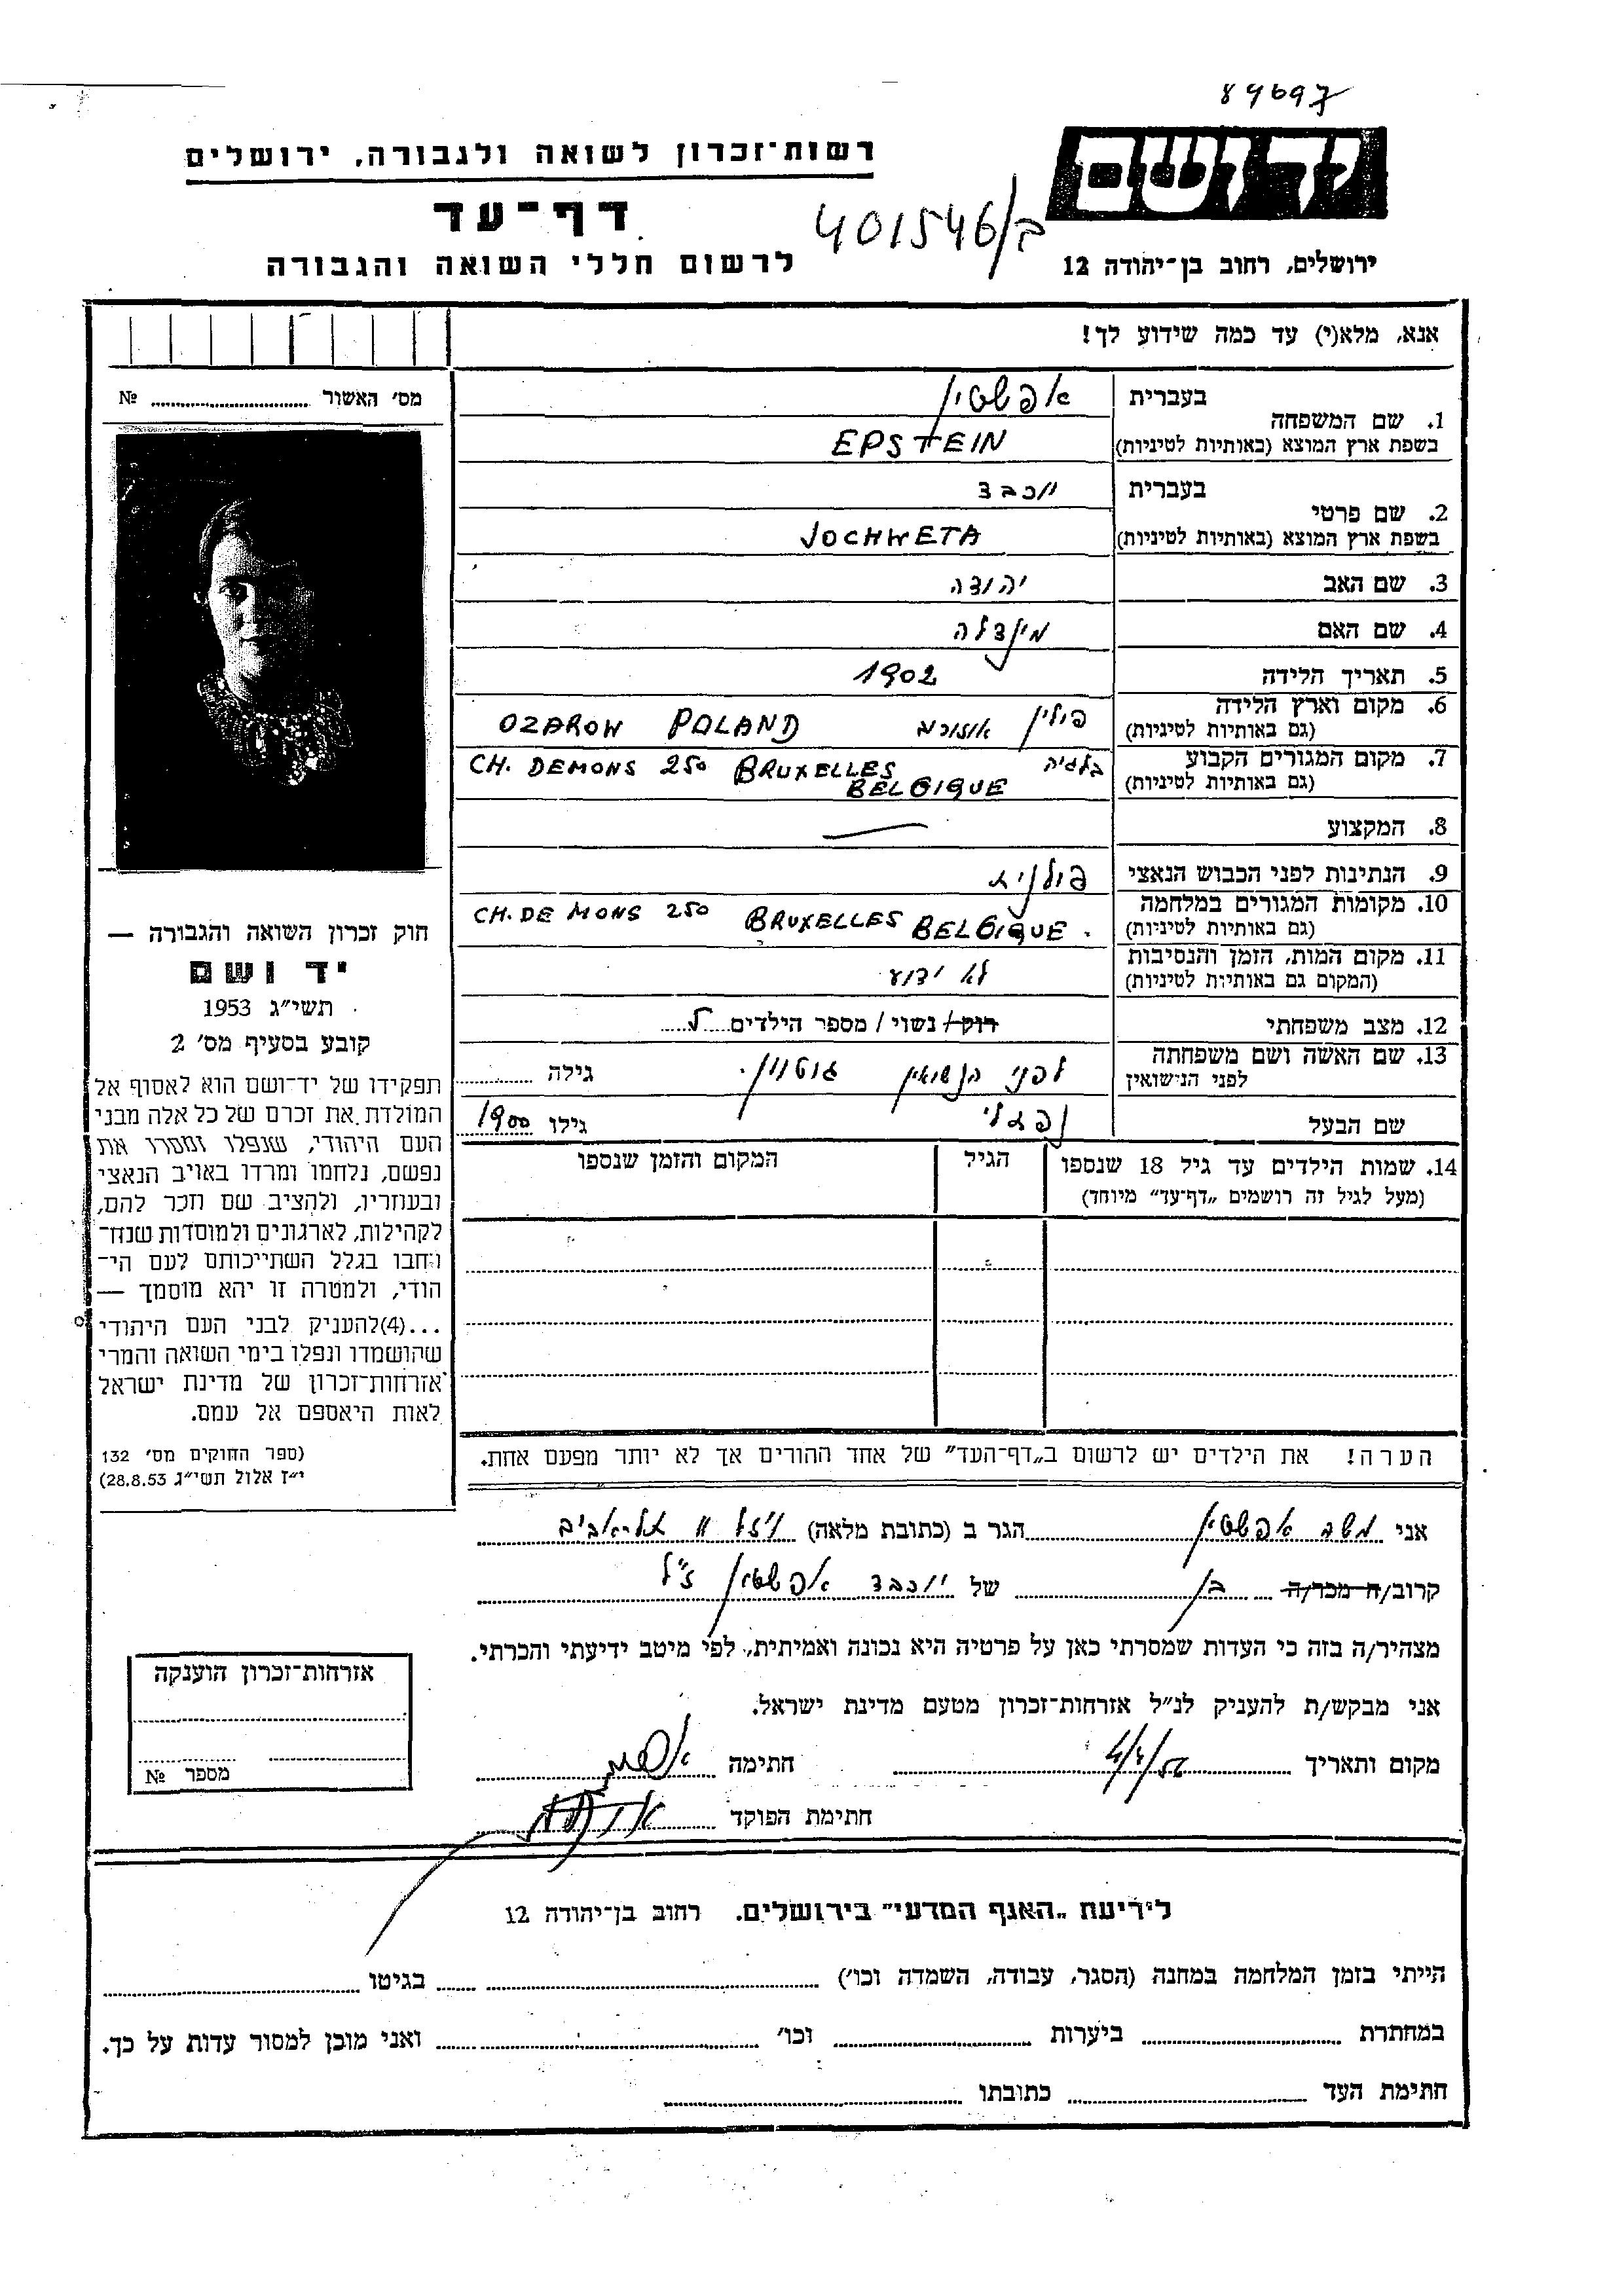 89697
יד ושם
רשות־זכרון לשואה ולגבורה, ירושלים
דף־עד
401546/ב
לרשום חללי השואה והגבורה
ירושלים, רחוב בן־יהודה 12
אנא, מלא(י) עד כמה שידוע לך!
מס׳ האשור № ....................
1. שם המשפחה
בעברית אפשטיין
בשפת ארץ המוצא (באותיות לטיניות) EPSTEIN
2. שם פרטי
בעברית יוכבד
בשפת ארץ המוצא (באותיות לטיניות) JOCHWETA
3. שם האב יהודה
4. שם האם מינדלה
5. תאריך הלידה 1902
6. מקום וארץ הלידה
(גם באותיות לטיניות) פולין OZAROW POLAND
7. מקום המגורים הקבוע
(גם באותיות לטיניות) בלגיה CH. DEMONS 250 BRUXELLES
BELGIQUE
8. המקצוע —
9. הנתינות לפני הכבוש הנאצי פולנית
10. מקומות המגורים במלחמה
(גם באותיות לטיניות) CH. DE MONS 250 BRUXELLES BELGIQUE.
11. מקום המות, הזמן והנסיבות
(המקום גם באותיות לטיניות) לא ידוע
12. מצב משפחתי רוק/ נשוי / מספר הילדים
13. שם האשה ושם משפחתה
לפני הנישואין לפני הנשואין גילה ..........
שם הבעל נפתלי גילו 1900
14. שמות הילדים עד גיל 18 שנספו
(מעל לגיל זה רושמים „דף־עד״ מיוחד)
הגיל
המקום והזמן שנספו
הערה! את הילדים יש לרשום ב„דף־העד״ של אחד ההורים אך לא יותר מפעם אחת.
חוק זכרון השואה והגבורה —
יד ושם
תשי״ג 1953
קובע בסעיף מס׳ 2
תפקידו של יד־ושם הוא לאסוף אל
המולדת את זכרם של כל אלה מבני
העם היהודי, שנפלו ומסרו את
נפשם, נלחמו ומרדו באויב הנאצי
ובעוזריו, ולהציב שם וזכר להם,
לקהילות, לארגונים ולמוסדות שנח־
רבו בגלל השתייכותם לעם הי־
הודי, ולמטרה זו יהא מוסמך —
...(4)להעניק לבני העם היהודי
שהושמדו ונפלו בימי השואה והמרי
אזרחות־זכרון של מדינת ישראל
לאות היאספם אל עמם.
(ספר החוקים מס׳ 132
י״ז אלול תשי״ג 28.8.53)
אני משה אפשטיין הגר ב (כתובת מלאה) 11 תל־אביב
קרוב/ה מכר/ה בן של יוכבד אפשטיין ז״ל
מצהיר/ה בזה כי העדות שמסרתי כאן על פרטיה היא נכונה ואמיתית, לפי מיטב ידיעתי והכרתי.
אני מבקש/ת להעניק לנ״ל אזרחות־זכרון מטעם מדינת ישראל.
מקום ותאריך חתימה
חתימת הפוקד
אזרחות־זכרון הוענקה
מספר №
לידיעת „האגף המדעי״ בירושלים. רחוב בן־יהודה 12
הייתי בזמן המלחמה במחנה (הסגר, עבודה, השמדה וכו׳) .................... בגיטו ....................
במחתרת .................... ביערות .................... וכו׳ .................... ואני מוכן למסור עדות על כך.
חתימת העד .................... כתובתו ....................